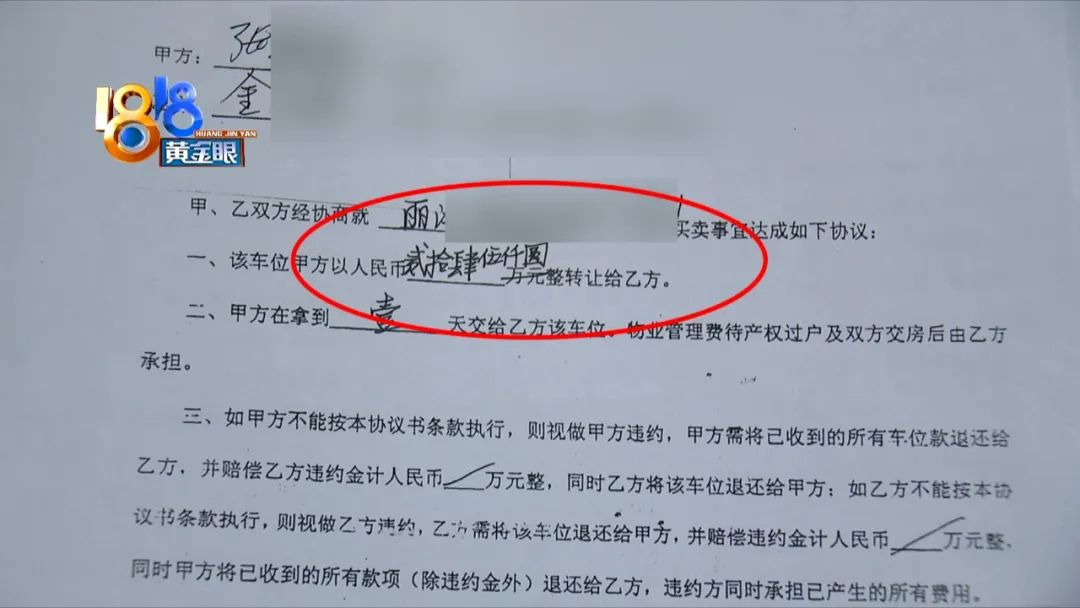 甲方：张
金
1818
HUANG JIN YAN
黄金眼
甲、乙双方经协商就 丽 买卖事宜达成如下协议：
一、该车位甲方以人民币贰拾肆伍仟圆万元整转让给乙方。
二、甲方在拿到 壹 天交给乙方该车位。物业管理费待产权过户及双方交房后由乙方
承担。
三、如甲方不能按本协议书条款执行，则视做甲方违约，甲方需将已收到的所有车位款退还给
乙方，并赔偿乙方违约金计人民币 万元整，同时乙方将该车位退还给甲方；如乙方不能按本协
议书条款执行，则视做乙方违约，乙方需将该车位退还给甲方，并赔偿违约金计人民币 万元整、
同时甲方将已收到的所有款项（除违约金外）退还给乙方，违约方同时承担已产生的所有费用。